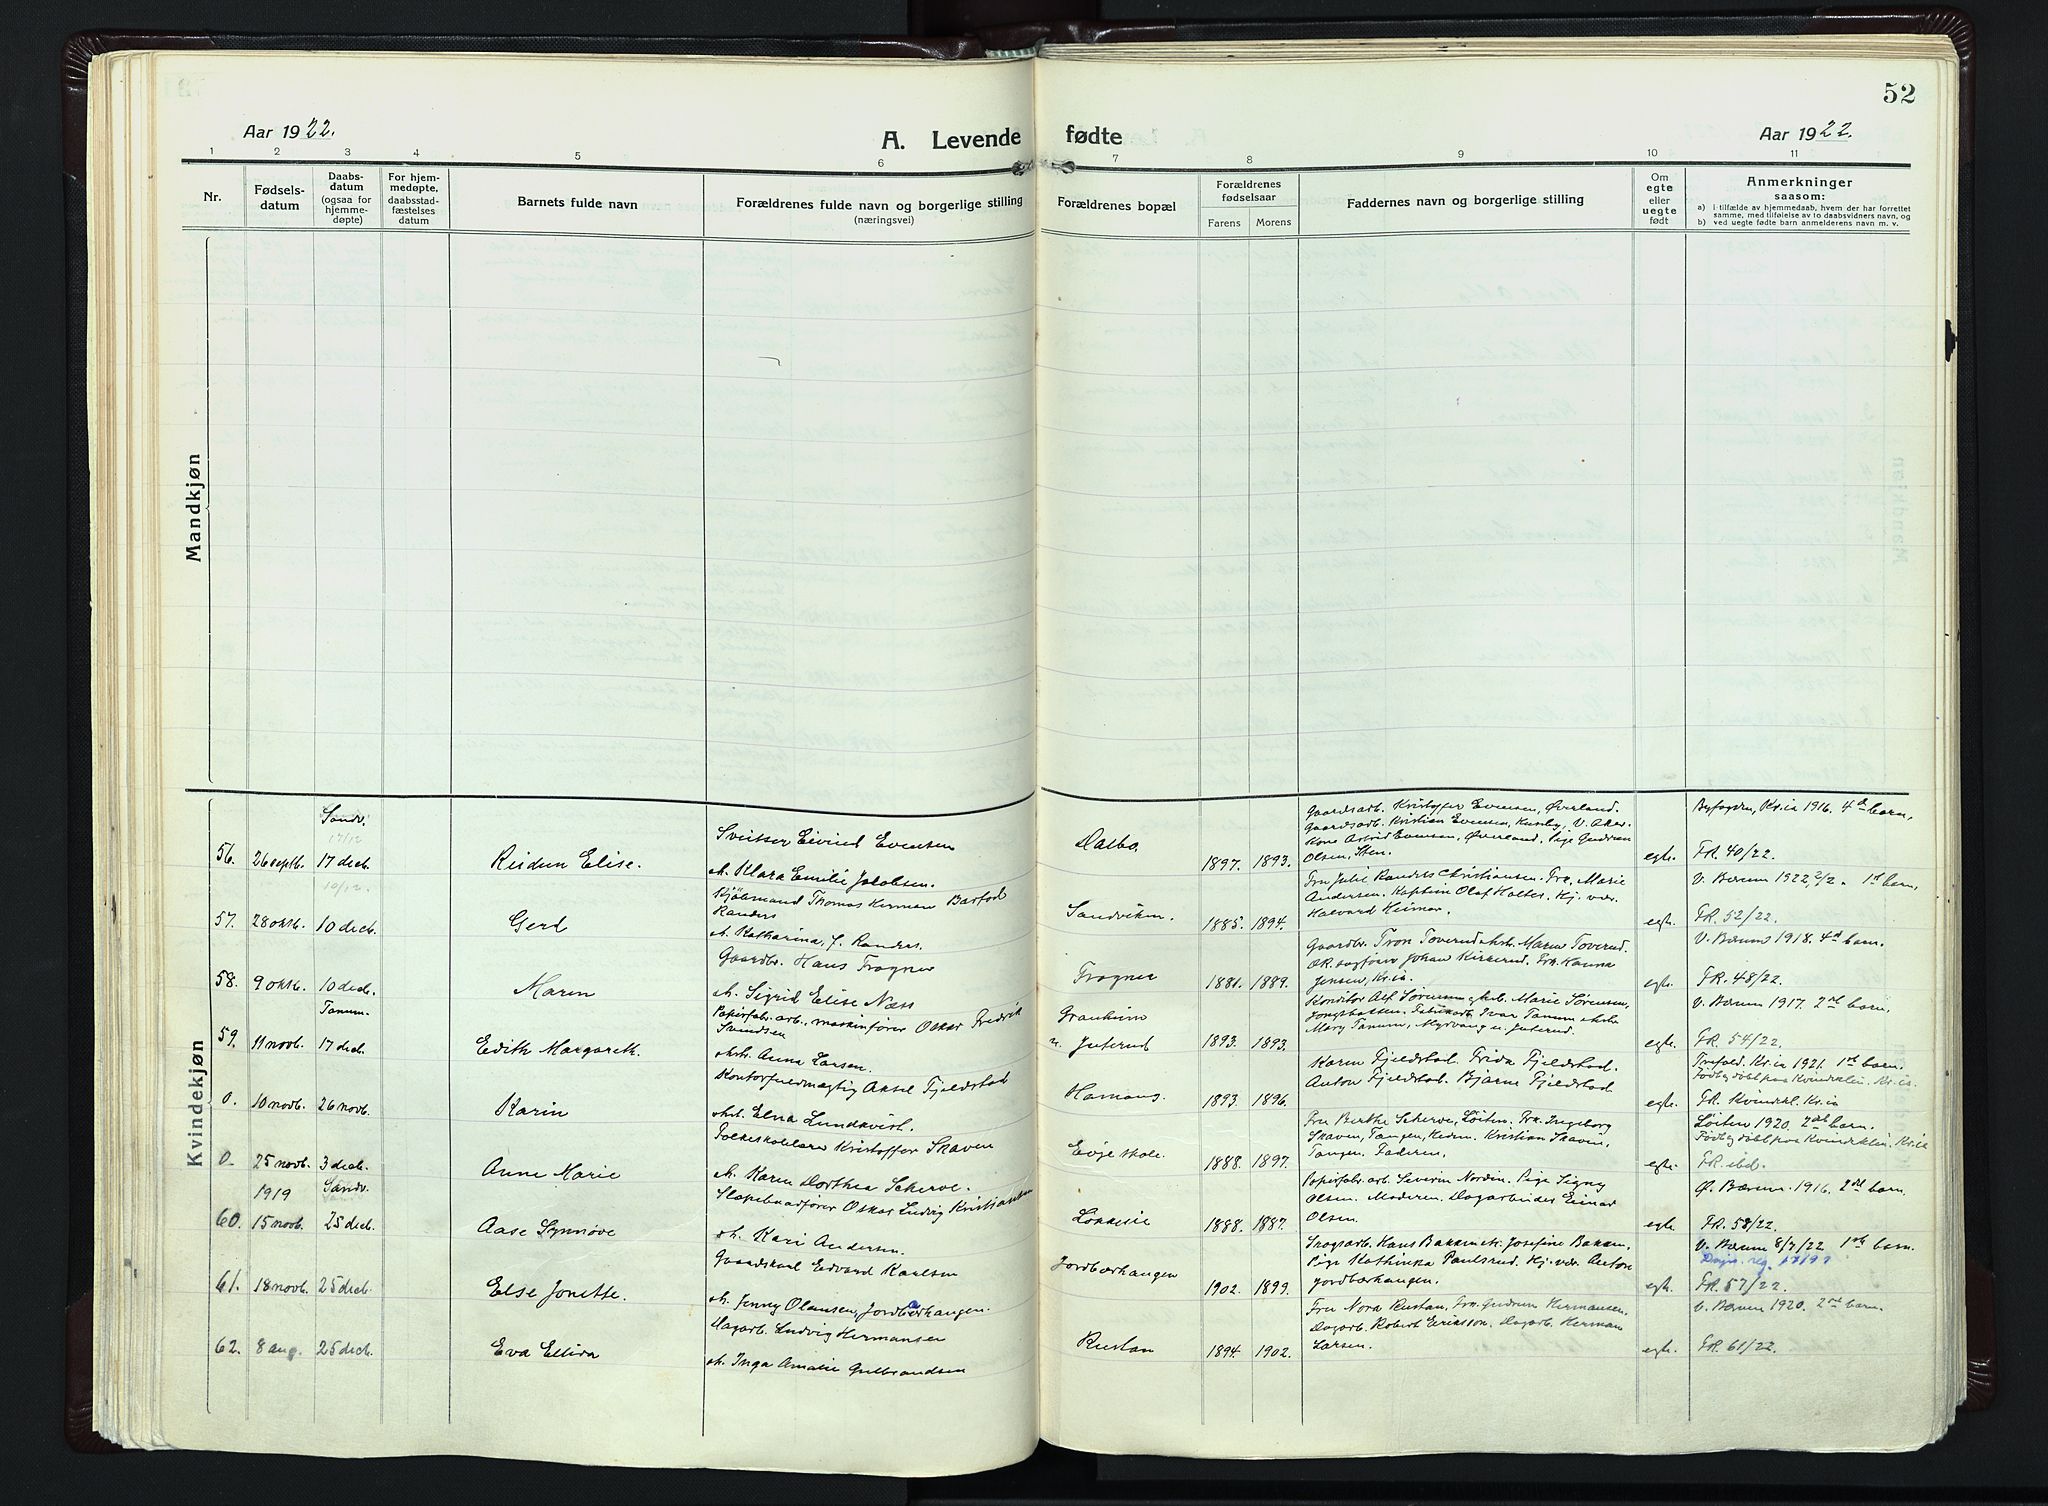 52
Aar 1922.
A. Levende fødte
Aar 1922.
1 2 3 4 5 6 7 8 9 10 11
Nr.
Fødsels-
datum
Daabs-
datum
(ogsaa for
hjemme-
døpte)
For hjem-
medøpte,
daabsstad-
fæstelses
datum
Barnets fulde navn
Forældrenes fulde navn og borgerlige stilling
(næringsvei)
Forældrenes bopæl
Forældrenes
fødselsaar
Farens Morens
Faddernes navn og borgerlige stilling
Om
egte
eller
uegte
født
Anmerkninger
saasom:
a) i tilfælde av hjemmedaab, hvem der har forrettet
samme, med tilføielse av to daabsvidners navn, og
b) ved uegte fødte barn anmelderens navn m. v.
Mandkjøn
Kvindekjøn
Sandv.
17/12
56. 26 septb. 17 decb.
Reidun Elise.
Sveitser Eivind Evensen
h. Klara Emilie Jacobsen.
Dalbo.
1897. 1893.
Gaardsarb. Kristoffer Evensen, Øverland.
Gaardsarb. Kristian Evensen, V. Aker.
Kone Astrid Evensen, Øverland. Pige Gudrun
Olsen, Sten.
egte.
Byfogden, Kr.ia 1916. 4de barn,
FR. 40/22.
10/12.
57. 28 oktb. 10 decb.
Gerd
Kjøbmand Thomas Herman Barfod
Randers
h. Katharina, f. Randers.
Sandviken.
1885. 1894.
Fru Julie Randers Christiansen. Frk. Marie
Andersen. Kaptein Olaf Holter. Kj. vær.
Halvard Heimar.
egte.
V. Bærum 1922, 2/2. 1st barn,
FR. 52/22.
58. 9 oktb. 10 decb.
Maren
Gaardbr. Hans Frogner
h. Sigrid Elise Næss
Frogner
1881. 1889.
Gaardbr. Tron Toverud o hst. Maren Toverud.
OR. sagfører Johan Kirkerud. Frk. Hanna
Jensen, Kr.ia.
egte.
V. Bærum 1918. 4de barn.
FR. 48/22.
Tanum.
59. 11 novb. 17 decb.
Edith Margareth.
Papirfabr. arb., maskinfører Oskar Fredrik
Svendsen
hst. Anna Larsen.
Granheim
u. Juterud
1893. 1893.
Konditor Alf Sørensen o hst. Marie Sørensen,
Jongsbakken. Fabrikarb. Ivar Tanum o hst.
Mary Tanum, Myrvang u. Juterud.
egte.
V. Bærum 1917. 2det barn,
FR. 54/22.
0. 10 novb. 26 novb.
Karin
Kontorfuldmægtig Aksel Fjeldstad
hst. Elna Lundkvist.
Hamang.
1893. 1896.
Karen Fjeldstad. Frida Fjeldstad.
Anton Fjeldstad. Bjarne Fjeldstad
egte.
Trefold. Kr.ia 1921. 1ste barn.
Født og døbt paa Kvindeklin. Kr.ia.
FR. Kvindekl. Kr.ia
0. 25 novb. 3 decb.
Anne Marie
Folkeskolelærer Kristoffer Skaven
h. Karen Dorthea Scherve.
Evje skole.
1888. 1897.
Fru Berthe Scherve, Løiten. Frk. Ingeborg
Skaven, Tangen, Hedm. Kristian Skaven,
Tangen. Faderen.
egte.
Løiten 1920. 2det barn.
Født og døbt paa Kvindeklin. Kr.ia
FR. ibd.
1919 Sandv.
60. 15 novb. 25 decb.
Aase Synnøve
Slæpebaadfører Oskar Ludvig Kristiansen
h. Kari Andersen.
Løkkesie
1888. 1887.
Papirfabr. arb. Severin Nordin. Pige Signy
Olsen. Moderen. Dagarbeider Einar
Olsen.
egte.
Ø. Bærum 1916. 2det barn.
FR. 58/22.
61. 18 novb. 25 decb.
Else Jonette.
Gaardskarl Edvard Karlsen
h. Jenny Olausen, Jordbærhaugen.
Jordbærhaugen
1902. 1899.
Skogsarb. Hans Bakken o k. Josefine Bakken,
Pige Kathinka Paulsrud. Kj. vær. Anton
Jordbærhaugen.
egte.
V. Bærum 8/7/22. 1ste barn.
FR. 57/22.
62. 8 aug. 25 decb.
Eva Ellida
Dagarb. Ludvig Hermansen
h. Inga Amalie Gulbrandsen
Rustan
1894. 1902.
Fru Nora Rustan, Frk. Gudrun Hermansen,
Dagarb. Robert Eriksson. Dagarb. Herman
Larsen.
egte.
V. Bærum 1920. 2det barn.
FR. 61/22.